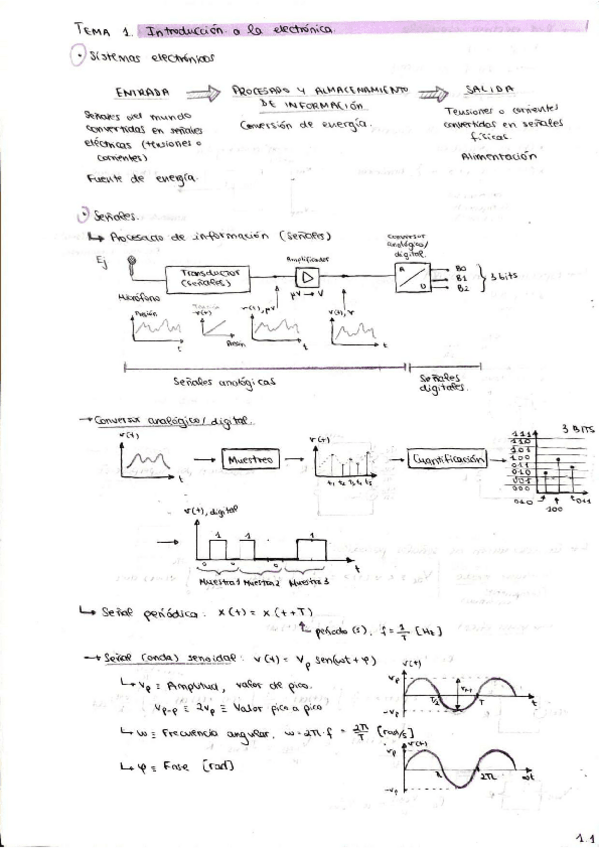 TEMA 1. Introducción a la electrónica.
• Sistemas electrónicos
ENTRADA ⟹ PROCESADO Y ALMACENAMIENTO DE INFORMACIÓN ⟹ SALIDA
Señales del mundo
convertidas en señales
eléctricas (tensiones o
corrientes)
Fuente de energía.
Conversión de energía.
Tensiones o corrientes
convertidas en señales
físicas.
Alimentación
• Señales.
↳ Procesado de información (señales)
Ej
Micrófono
Transductor
(señales)
Amplificador
μV → V
conversor
analógico/
digital.
A
D
B0
B1
B2
3 bits
Presión
t
v(t)
Presión
v(t), μV
t
v(t), V
t
Señales analógicas
Señales
digitales.
→ Conversor analógico/digital.
v(t)
t
Muestreo
v(t)
t₁ t₂ t₃ t₄ t₅
t
Cuantificación
3 BITS
111
110
101
100
011
010
001
000
010
100
011
v(t), digital
1 1 1
0 0 0
t
Muestra 1 Muestra 2 Muestra 3
↳ Señal periódica: x(t) = x(t+T)
periodo (s), f = 1/T [Hz]
→ Señal (onda) senoidal: v(t) = Vp sen(ωt + φ)
↳ Vp ≡ Amplitud, valor de pico.
Vp-p ≡ 2Vp ≡ Valor pico a pico
↳ ω ≡ Frecuencia angular, ω = 2π·f = 2π/T [rad/s]
↳ φ ≡ Fase [rad]
v(t)
Vp
-Vp
Vp-p
T/2
T
t
v(t)
Vp
-Vp
π
2π
ωt
1.1